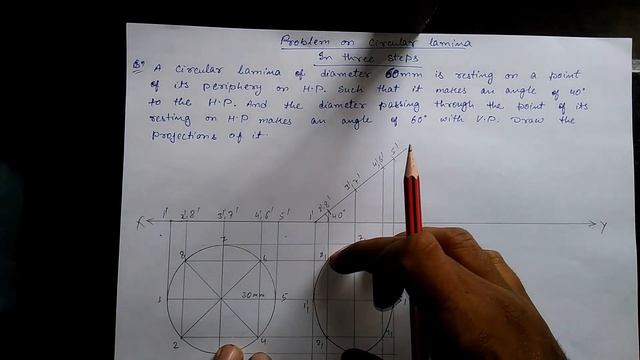 Problem on circular lamina
In three steps
Q. A circular lamina of diameter 60mm is resting on a point
of its periphery on H.P. such that it makes an angle of 40°
to the H.P. And the diameter passing through the point of its
resting on H.P makes an angle of 60° with V.P. Draw the
projections of it.
1' 2',8' 3',7' 4',6' 5'
1' 2',8' 3',7' 4',6' 5'
40°
X Y
7
8 6
1 30mm 5
2 4